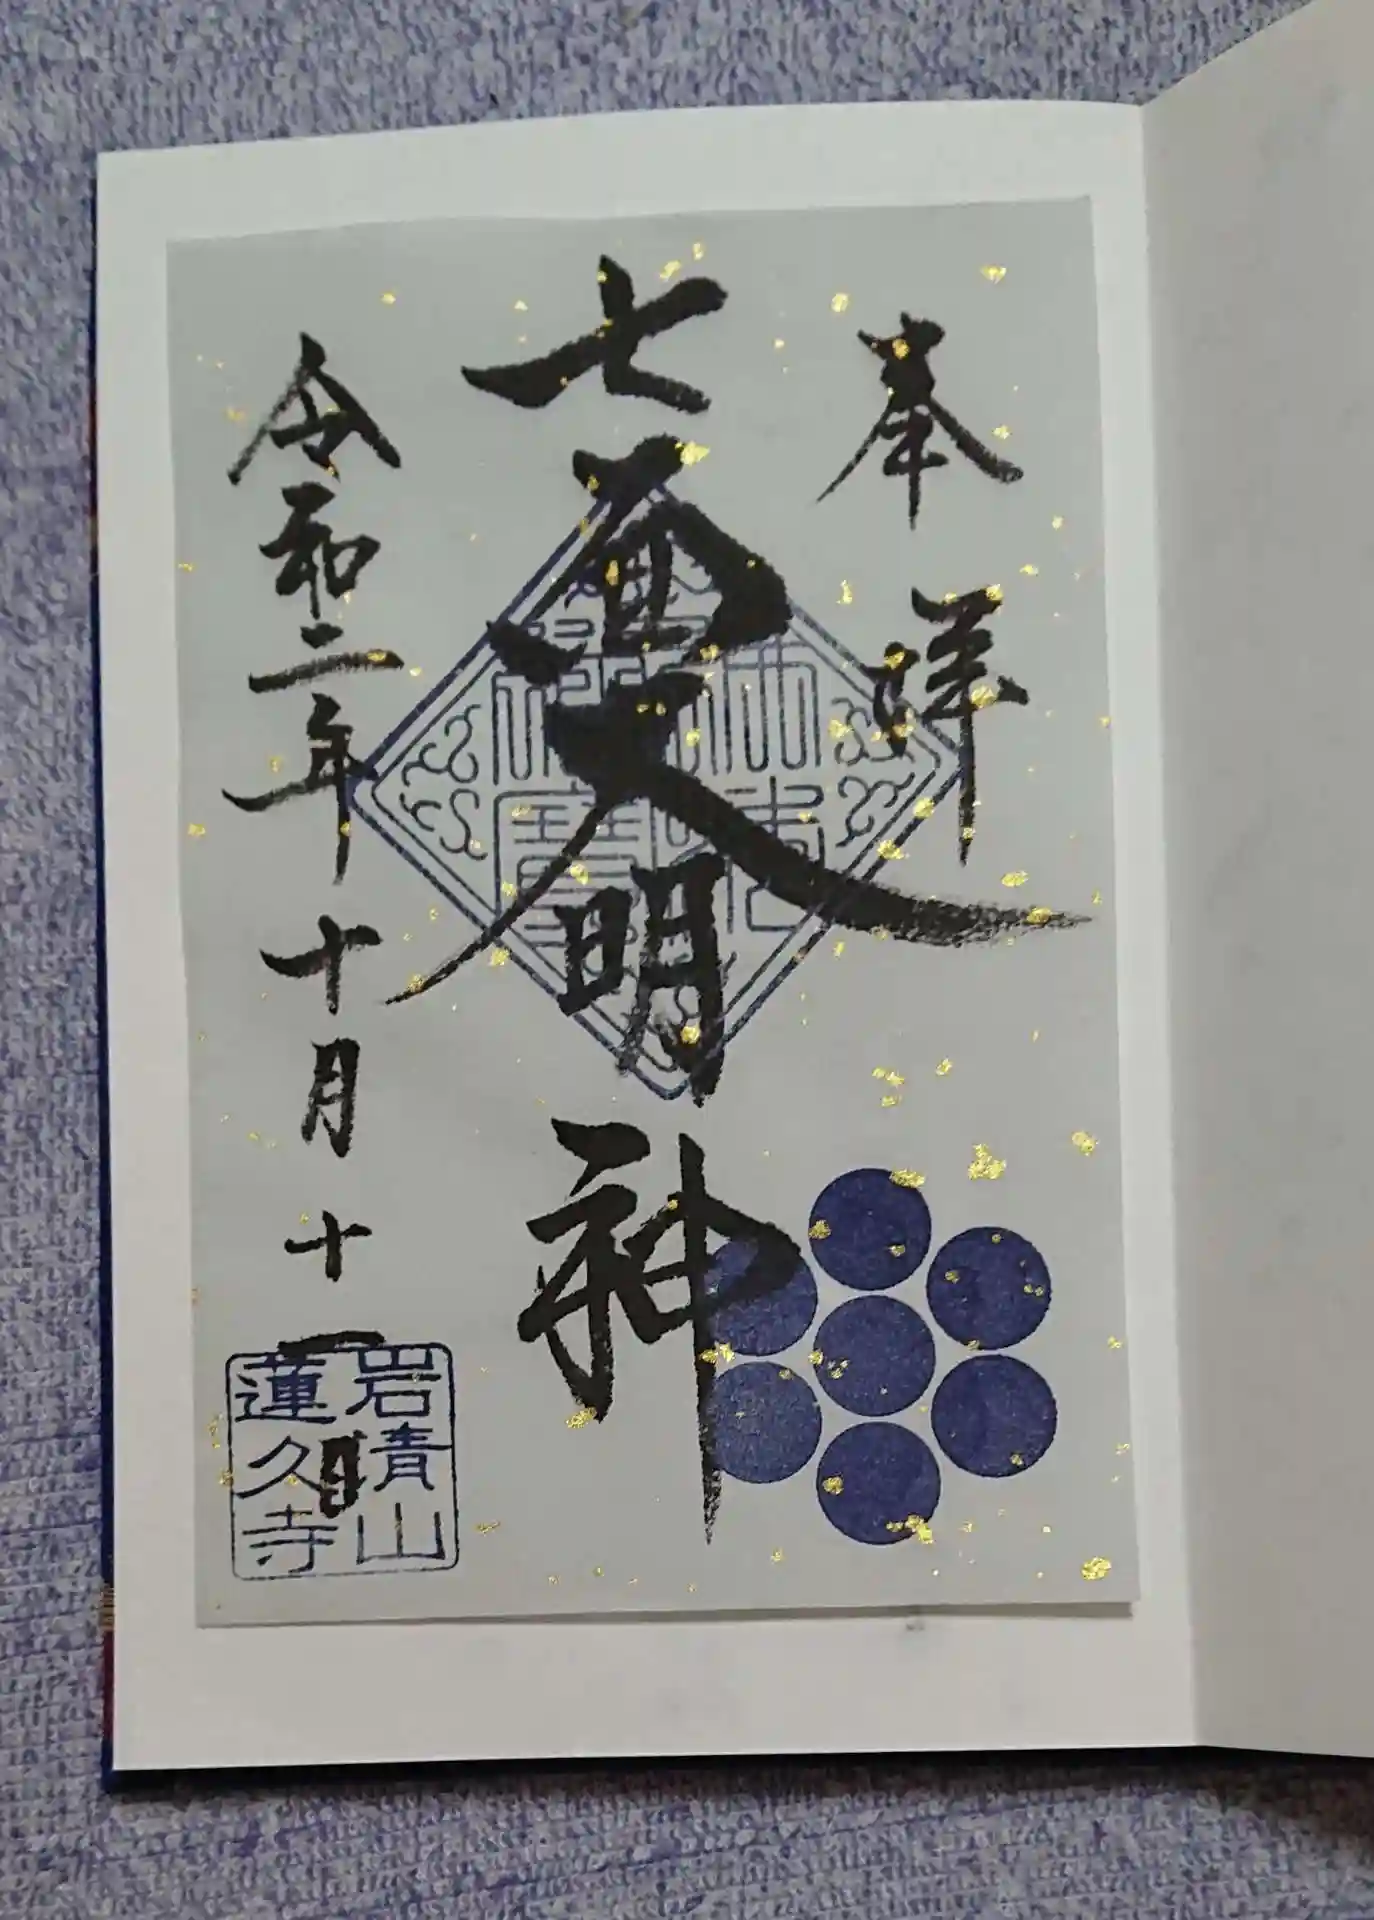 奉拝
七面大明神
佛法僧寶
令和二年十月十一日
蓮久寺